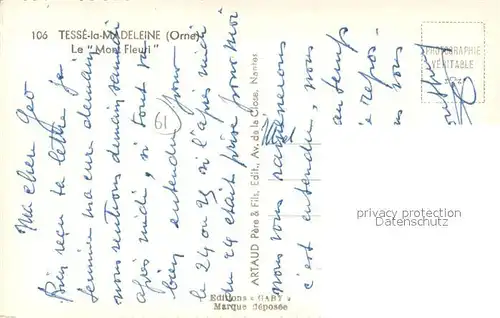 106 TESSÉ-la-MADELEINE (Orne)
Le "Mont Fleuri"
Ma cher Geo
Bien reçu ta lettre je
termine ma cure demain
nous rentrons demain samedi
après midi, si tout va
bien entendu pour
le 24 ou 25 si l'après midi
du 24 était prise pour moi
nous vous ramènerons
c'est entendu, nous
au temps
repos
vous
61
ARTAUD Père & Fils, Edit., Av. de la Close, Nantes
Editions "GABY"
Marque déposée
PHOTOGRAPHIE
VÉRITABLE
privacy protection